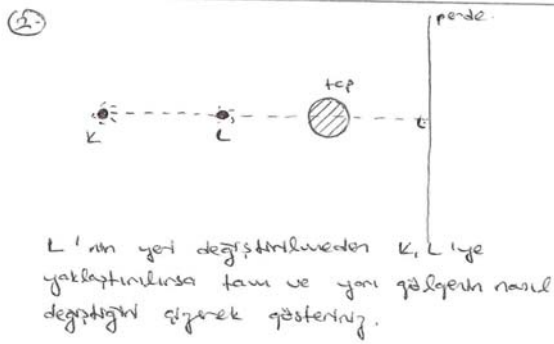 2.
perde
top
K L
L'nin yeri değiştirilmeden K, L'ye
yaklaştırılırsa tam ve yarı gölgenin nasıl
değiştiğini çizerek gösteriniz.